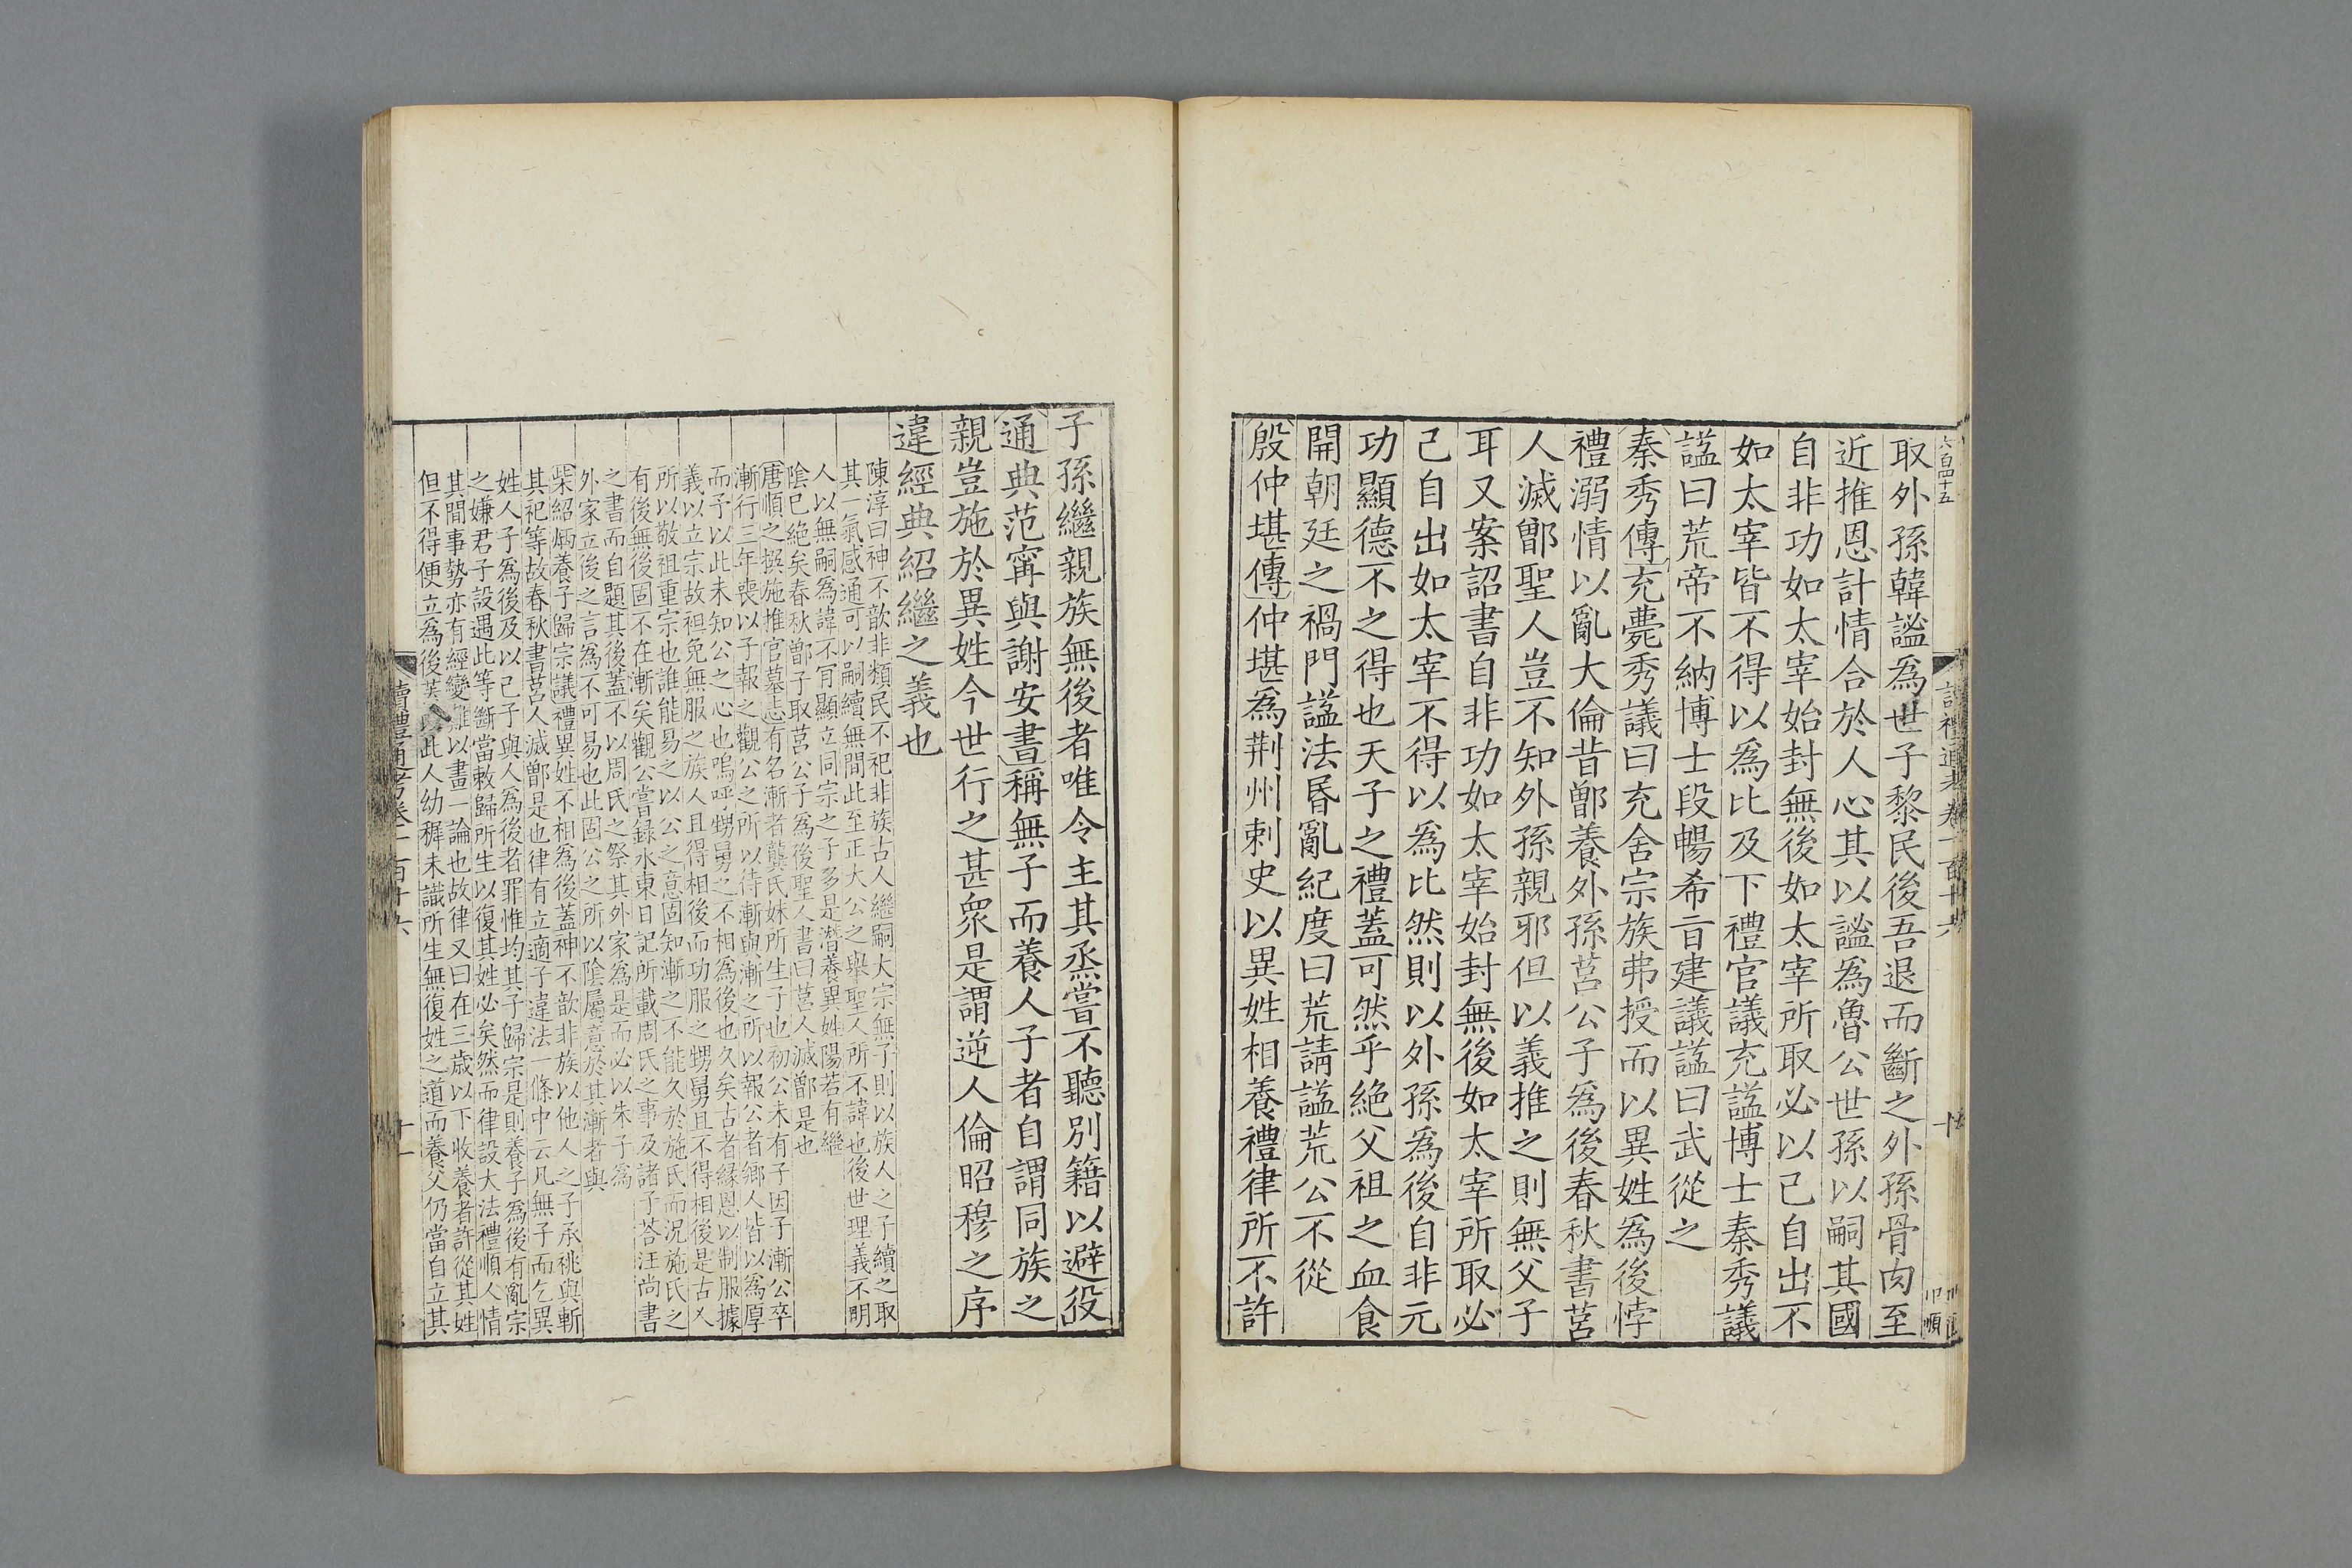 六百四十五
取外孫韓謐爲世子黎民後吾退而斷之外孫骨肉至
近推恩計情合於人心其以謐爲魯公世孫以嗣其國
自非功如太宰始封無後如太宰所取必以己自出不
如太宰皆不得以爲比及下禮官議充諡博士秦秀議
諡曰荒帝不納博士段暢希㫖建議諡曰武從之
秦秀傳充薨秀議曰充舍宗族弗授而以異姓爲後悖
禮溺情以亂大倫昔鄫養外孫莒公子爲後春秋書莒
人滅鄫聖人豈不知外孫親邪但以義推之則無父子
耳又案詔書自非功如太宰始封無後如太宰所取必
己自出如太宰不得以爲比然則以外孫爲後自非元
功顯德不之得也天子之禮蓋可然乎絕父祖之血食
開朝廷之禍門諡法昬亂紀度曰荒請諡荒公不從
殷仲堪傳仲堪爲荆州刺史以異姓相養禮律所不許
子孫繼親族無後者唯令主其烝嘗不聽別籍以避役
通典范甯與謝安書稱無子而養人子者自謂同族之
親豈施於異姓今世行之甚衆是謂逆人倫昭穆之序
違經典紹繼之義也
陳淳曰神不歆非類民不祀非族古人繼嗣大宗無子則以族人之子續之取
其一氣感通可以嗣續無間此至正大公之舉聖人所不諱也後世理義不明
人以無嗣爲諱不肎顯立同宗之子多是潛養異姓陽若有繼
陰已絕矣春秋鄫子取莒公子爲後聖人書曰莒人滅鄫是也
唐順之撰施推官墓志有名漸者龔氏妹所生子也初公未有子因子漸公卒
漸行三年喪以子報之觀公之所以待漸與漸之所以報公者鄉人皆以爲厚
而子以此未知公之心也嗚呼甥舅之不相爲後也久矣古者緣恩以制服據
義以立宗故袒免無服之族人且得相後而功服之甥舅且不得相後是古人
所以敬祖重宗也誰能易之以公之意固知漸之不能久於施氏而況施氏之
有後無後固不在漸矣觀公嘗録水東日記所載周氏之事及諸子荅汪尚書
之書而自題其後蓋不以周氏之祭其外家爲是而必以朱子爲
外家立後之言爲不可易也此固公之所以陰屬意於其漸者與
柴紹炳養子歸宗議禮異姓不相爲後蓋神不歆非族以他人之子承祧與斬
其祀等故春秋書莒人滅鄫是也律有立適子違法一條中云凡無子而乞異
姓人子爲後及以己子與人爲後者罪惟均其子歸宗是則養子爲後有亂宗
之嫌君子設遇此等斷當敕歸所生以復其姓必矣然而律設大法禮順人情
其間事勢亦有經變難以畫一論也故律又曰在三歲以下收養者許從其姓
但不得便立爲後此人幼穉未識所生無復姓之道而養父仍當自立其
讀禮通考卷一百十六
十一